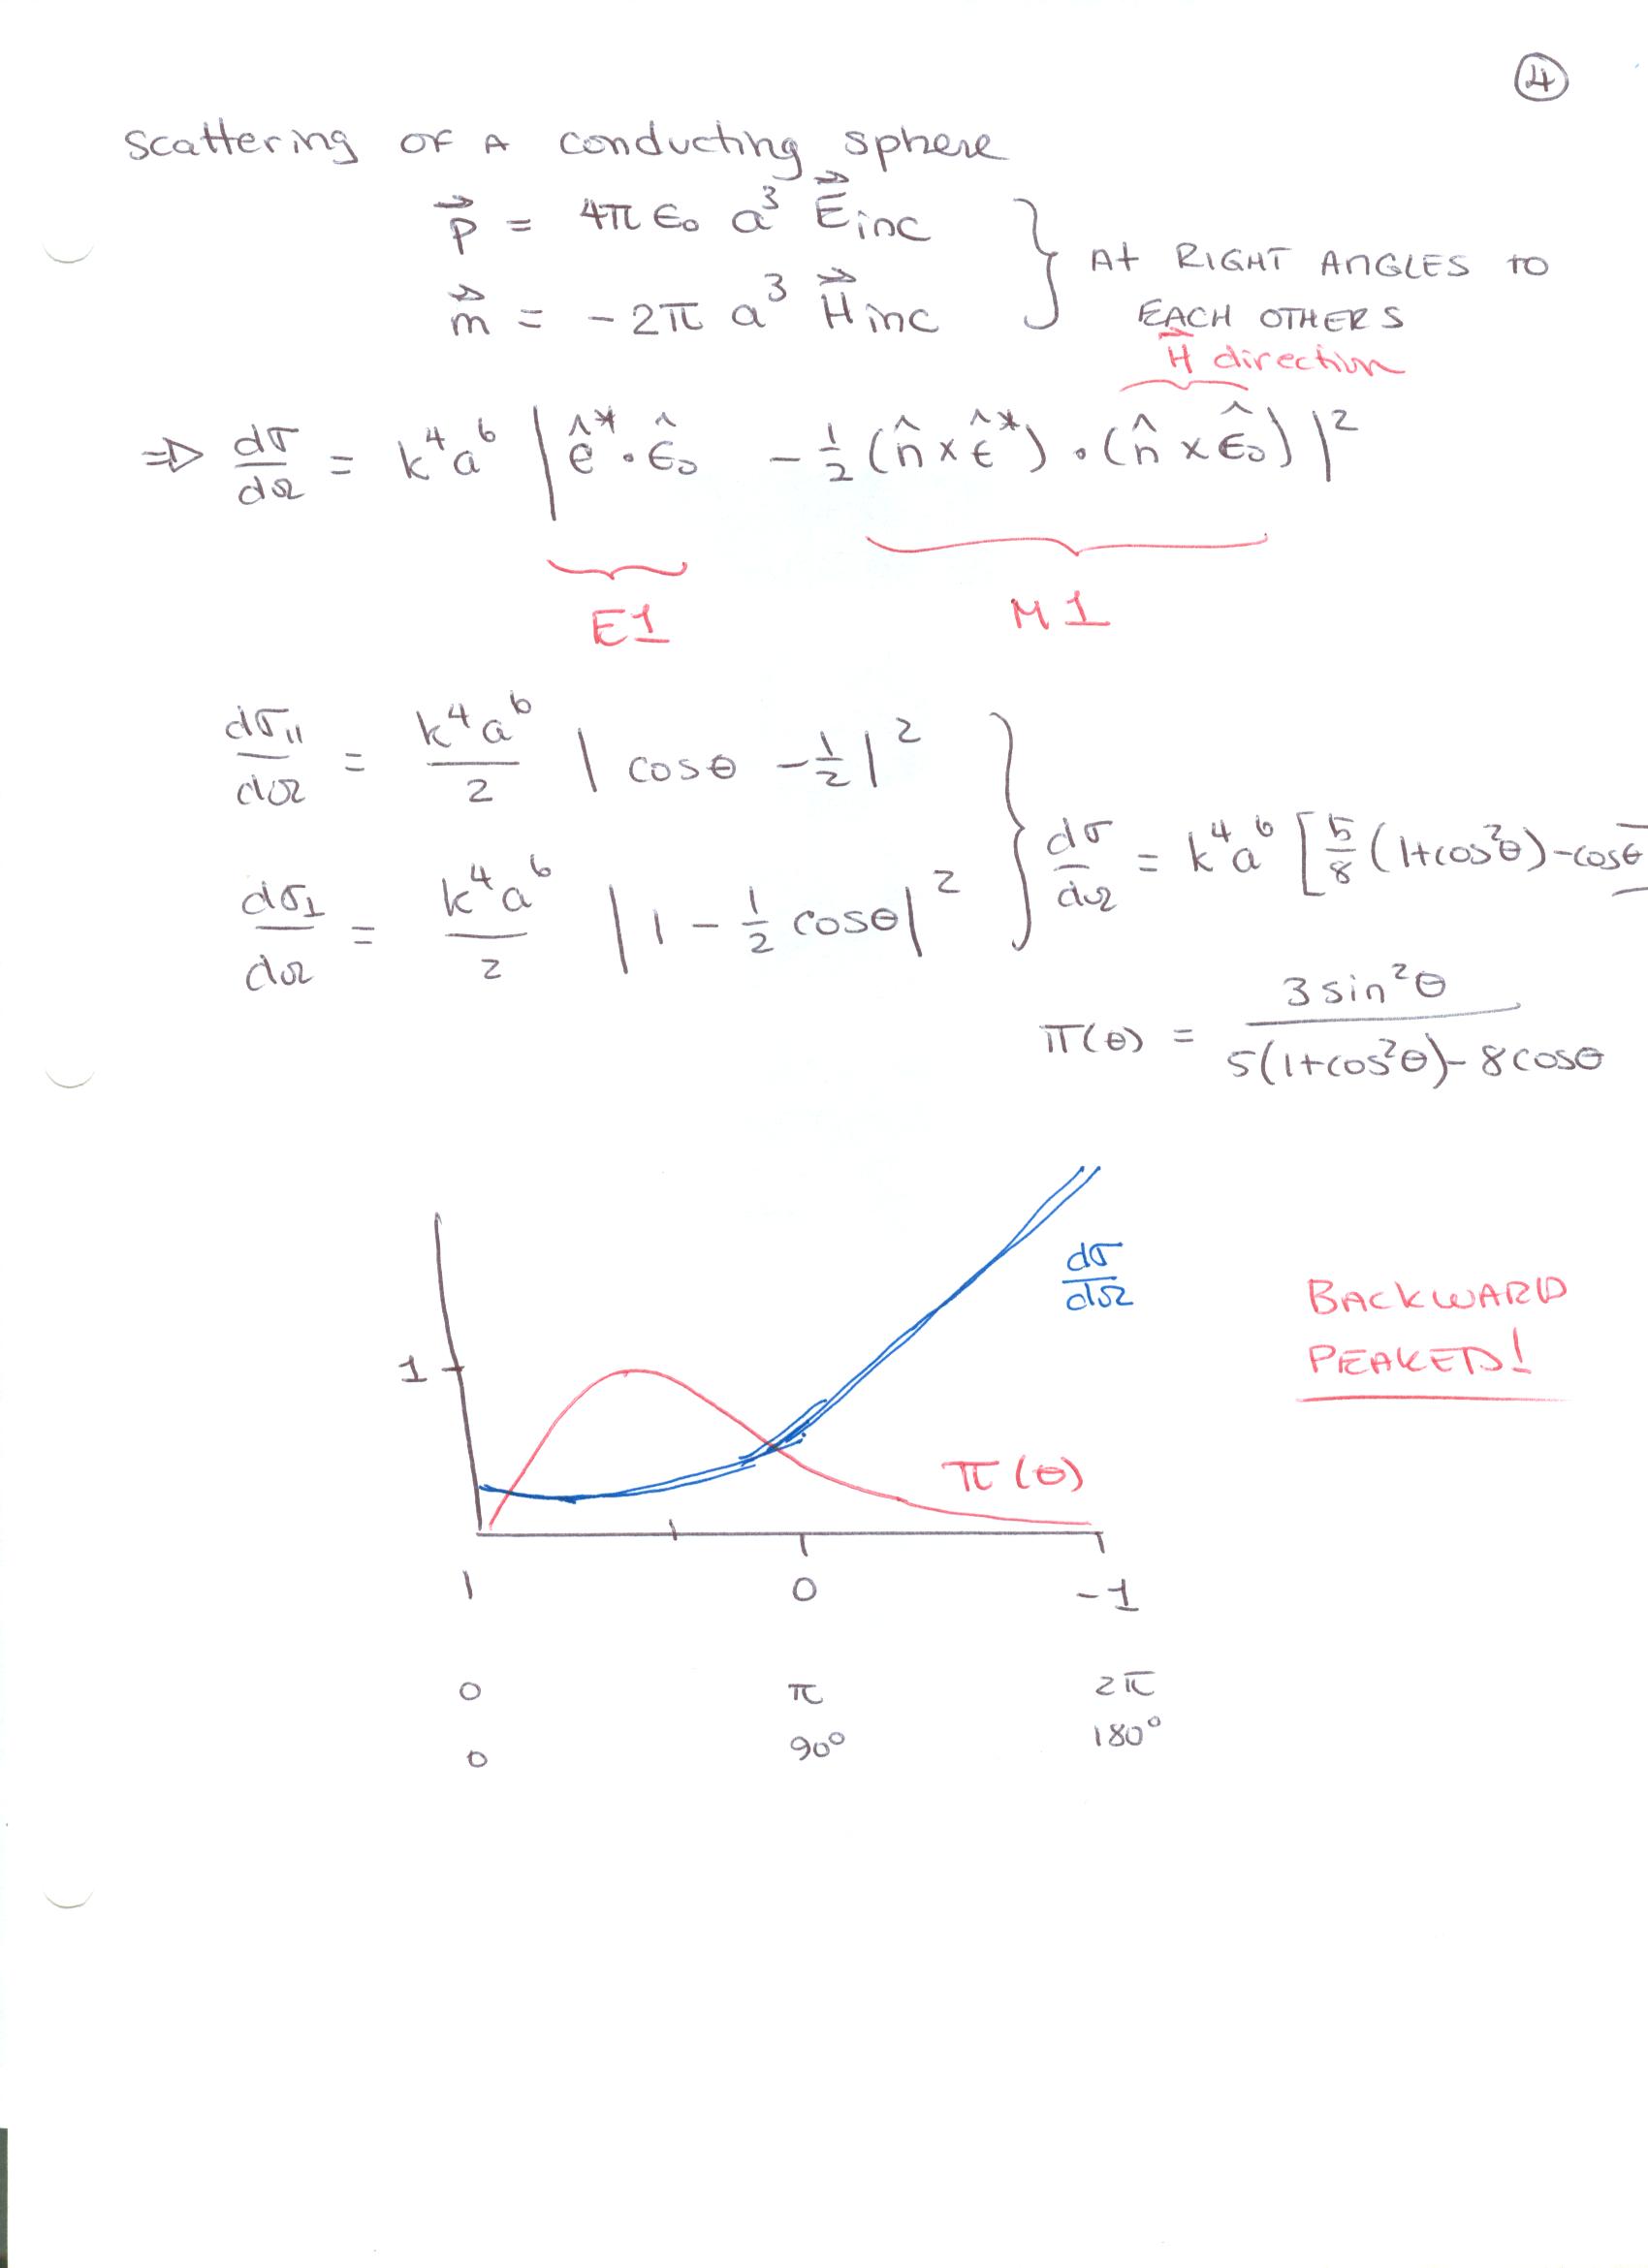 ④
Scattering OF A conducting sphere
p⃗ = 4π ε₀ a³ E⃗inc
m⃗ = - 2π a³ H⃗inc
} At RIGHT ANGLES TO
EACH OTHERS
H⃗ direction
⇒ dσ/dΩ = k⁴a⁶ | ê* · ε̂₀ - 1/2 (n̂ × ε̂*) · (n̂ × ε̂₀) |²
E1
M1
dσ∥/dΩ = k⁴a⁶/2 | cosθ - 1/2 |²
dσ⊥/dΩ = k⁴a⁶/2 | 1 - 1/2 cosθ |²
} dσ/dΩ = k⁴a⁶ [ 5/8 (1+cos²θ) - cosθ
Π(θ) = 3 sin²θ / 5(1+cos²θ) - 8 cosθ
dσ/dΩ
BACKWARD
PEAKED!
1
Π(θ)
1 0 -1
0 π 2π
0 90° 180°